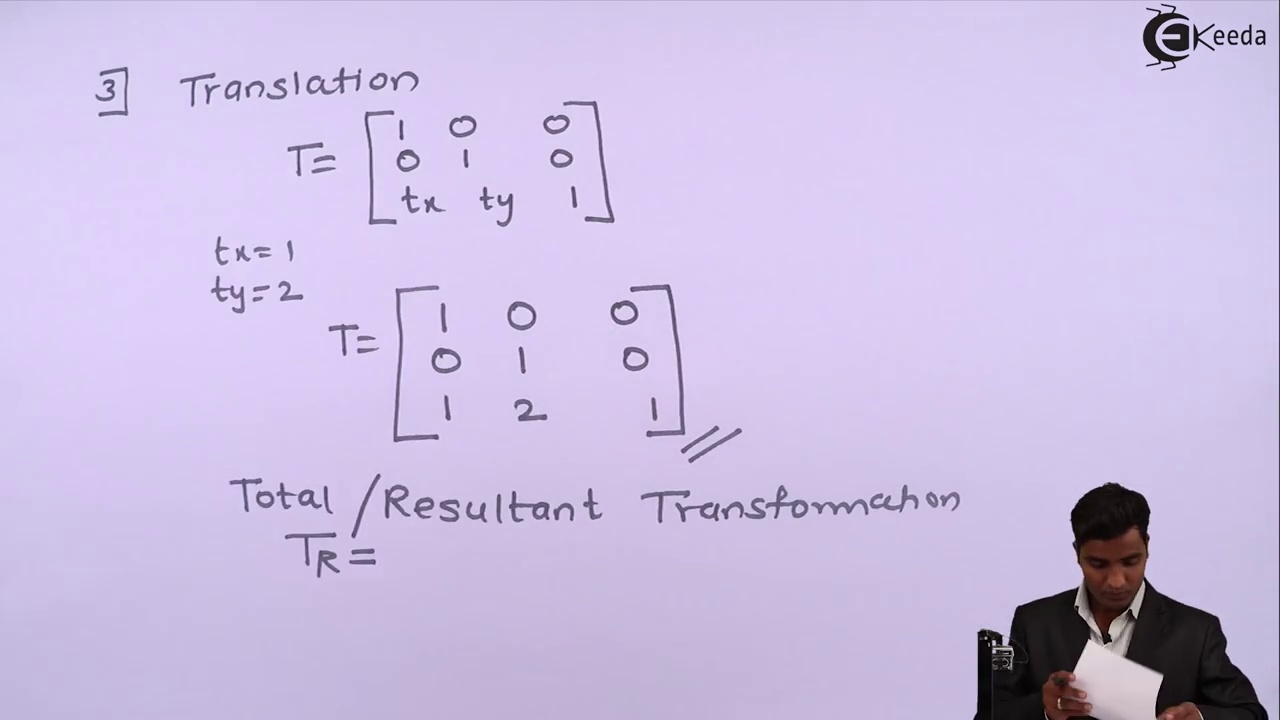 Keeda
3] Translation
T= [1 0 0
0 1 0
tx ty 1]
tx=1
ty=2
T= [1 0 0
0 1 0
1 2 1]
Total / Resultant Transformation
TR=